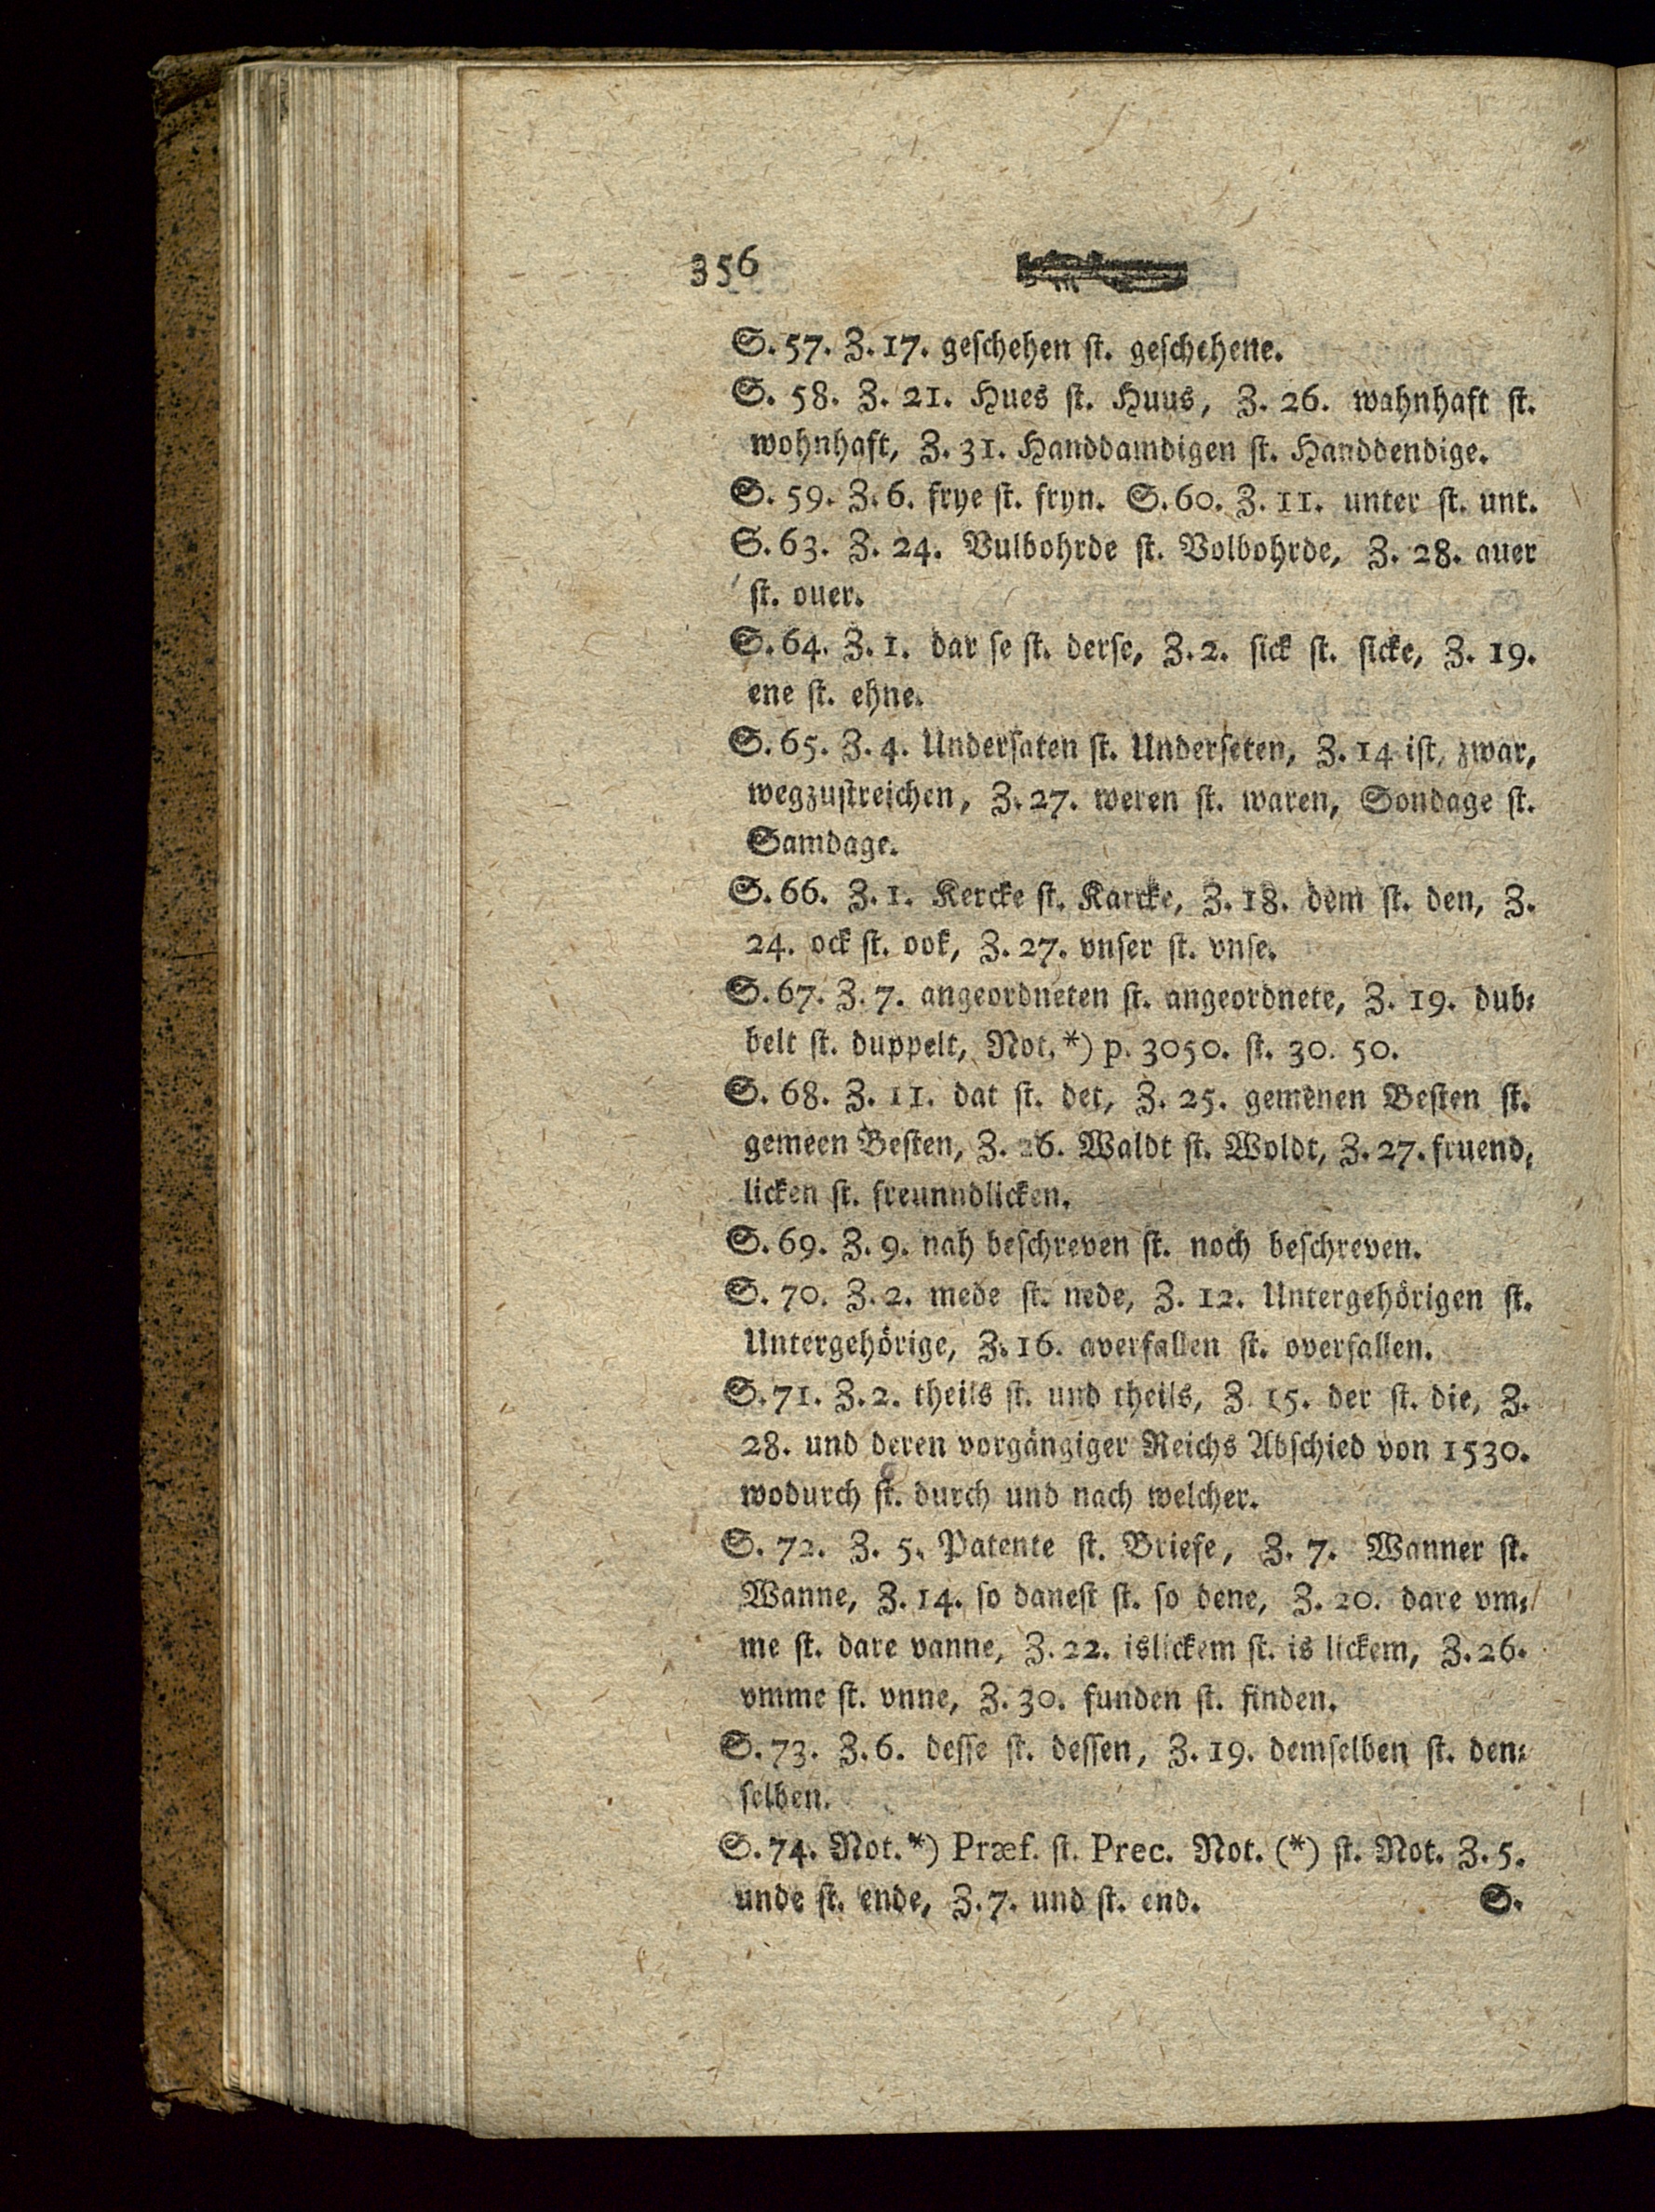 356
S. 57. Z. 17. geschehen st. geschehene.
S. 58. Z. 21. Hues st. Huus, Z. 26. wahnhaft st.
wohnhaft, Z. 31. Handdamdigen st. Handdendige.
S. 59. Z. 6. frye st. fryn. S. 60. Z. 11. unter st. unt.
S. 63. Z. 24. Vulbohrde st. Volbohrde, Z. 28. auer
st. ouer.
S. 64. Z. 1. dar se st. derse, Z. 2. sick st. sicke, Z. 19.
ene st. ehne.
S. 65. Z. 4. Undersaten st. Underseten, Z. 14 ist, zwar,
wegzustreichen, Z. 27. weren st. waren, Sondage st.
Samdage.
S. 66. Z. 1. Kercke st. Karcke, Z. 18. dem st. den, Z.
24. ock st. ook, Z. 27. vnser st. vnse.
S. 67. Z. 7. angeordneten st. angeordnete, Z. 19. dub⸗
belt st. duppelt, Not. *) p. 3050. st. 30. 50.
S. 68. Z. 11. dat st. det, Z. 25. gemenen Besten st.
gemeen Besten, Z. 26. Waldt st. Woldt, Z. 27. fruend⸗
licken st. freunndlicken.
S. 69. Z. 9. nah beschreven st. noch beschreven.
S. 70. Z. 2. mede st. nede, Z. 12. Untergehörigen st.
Untergehörige, Z. 16. averfallen st. overfallen.
S. 71. Z. 2. theils st. und theils, Z. 15. der st. die, Z.
28. und deren vorgängiger Reichs Abschied von 1530.
wodurch st. durch und nach welcher.
S. 72. Z. 5. Patente st. Briefe, Z. 7. Wanner st.
Wanne, Z. 14. so danest st. so dene, Z. 20. dare vm⸗
me st. dare vanne, Z. 22. islickem st. is lickem, Z. 26.
vmme st. vnne, Z. 30. funden st. finden.
S. 73. Z. 6. desse st. dessen, Z. 19. demselben st. den⸗
selben.
S. 74. Not. *) Præf. st. Prec. Not. (*) st. Not. Z. 5.
unde st. ende, Z. 7. und st. end. S.